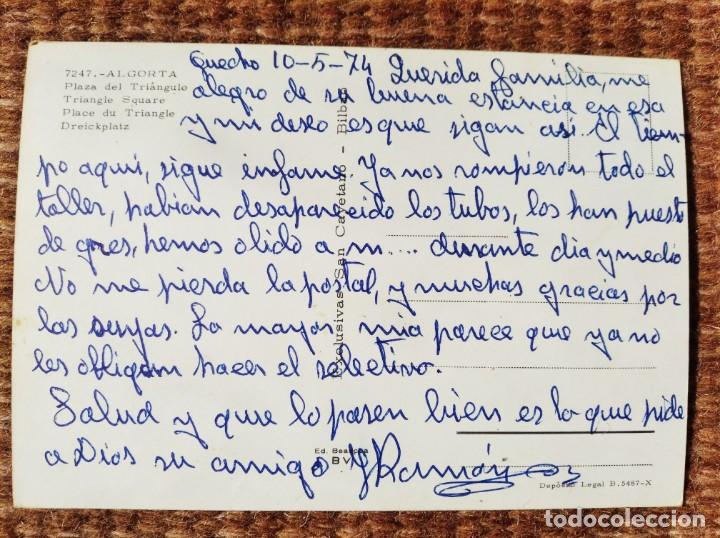 7247.-ALGORTA
Plaza del Triángulo
Triangle Square
Place du Triangle
Dreickplatz
Guecho 10-5-74 Querida familia, me
alegro de su buena estancia en esa
y mi deseo es que sigan así. El tiem-
po aquí, sigue infame. Ya nos rompieron todo el
taller, habían desaparecido los tubos, los han puesto
de gres, hemos olido a m.... durante dia y medio
No me pierda la postal, y muchas gracias por
las suyas. La mayor mia parece que ya no
les obligan hacer el selectivo.
Salud y que lo pasen bien es lo que pide
a Dios su amigo JRamón
Exclusivas San Cayetano - Bilbao
Ed. Beascoa
BV
Depósito Legal B.5487-X
todocoleccion.net